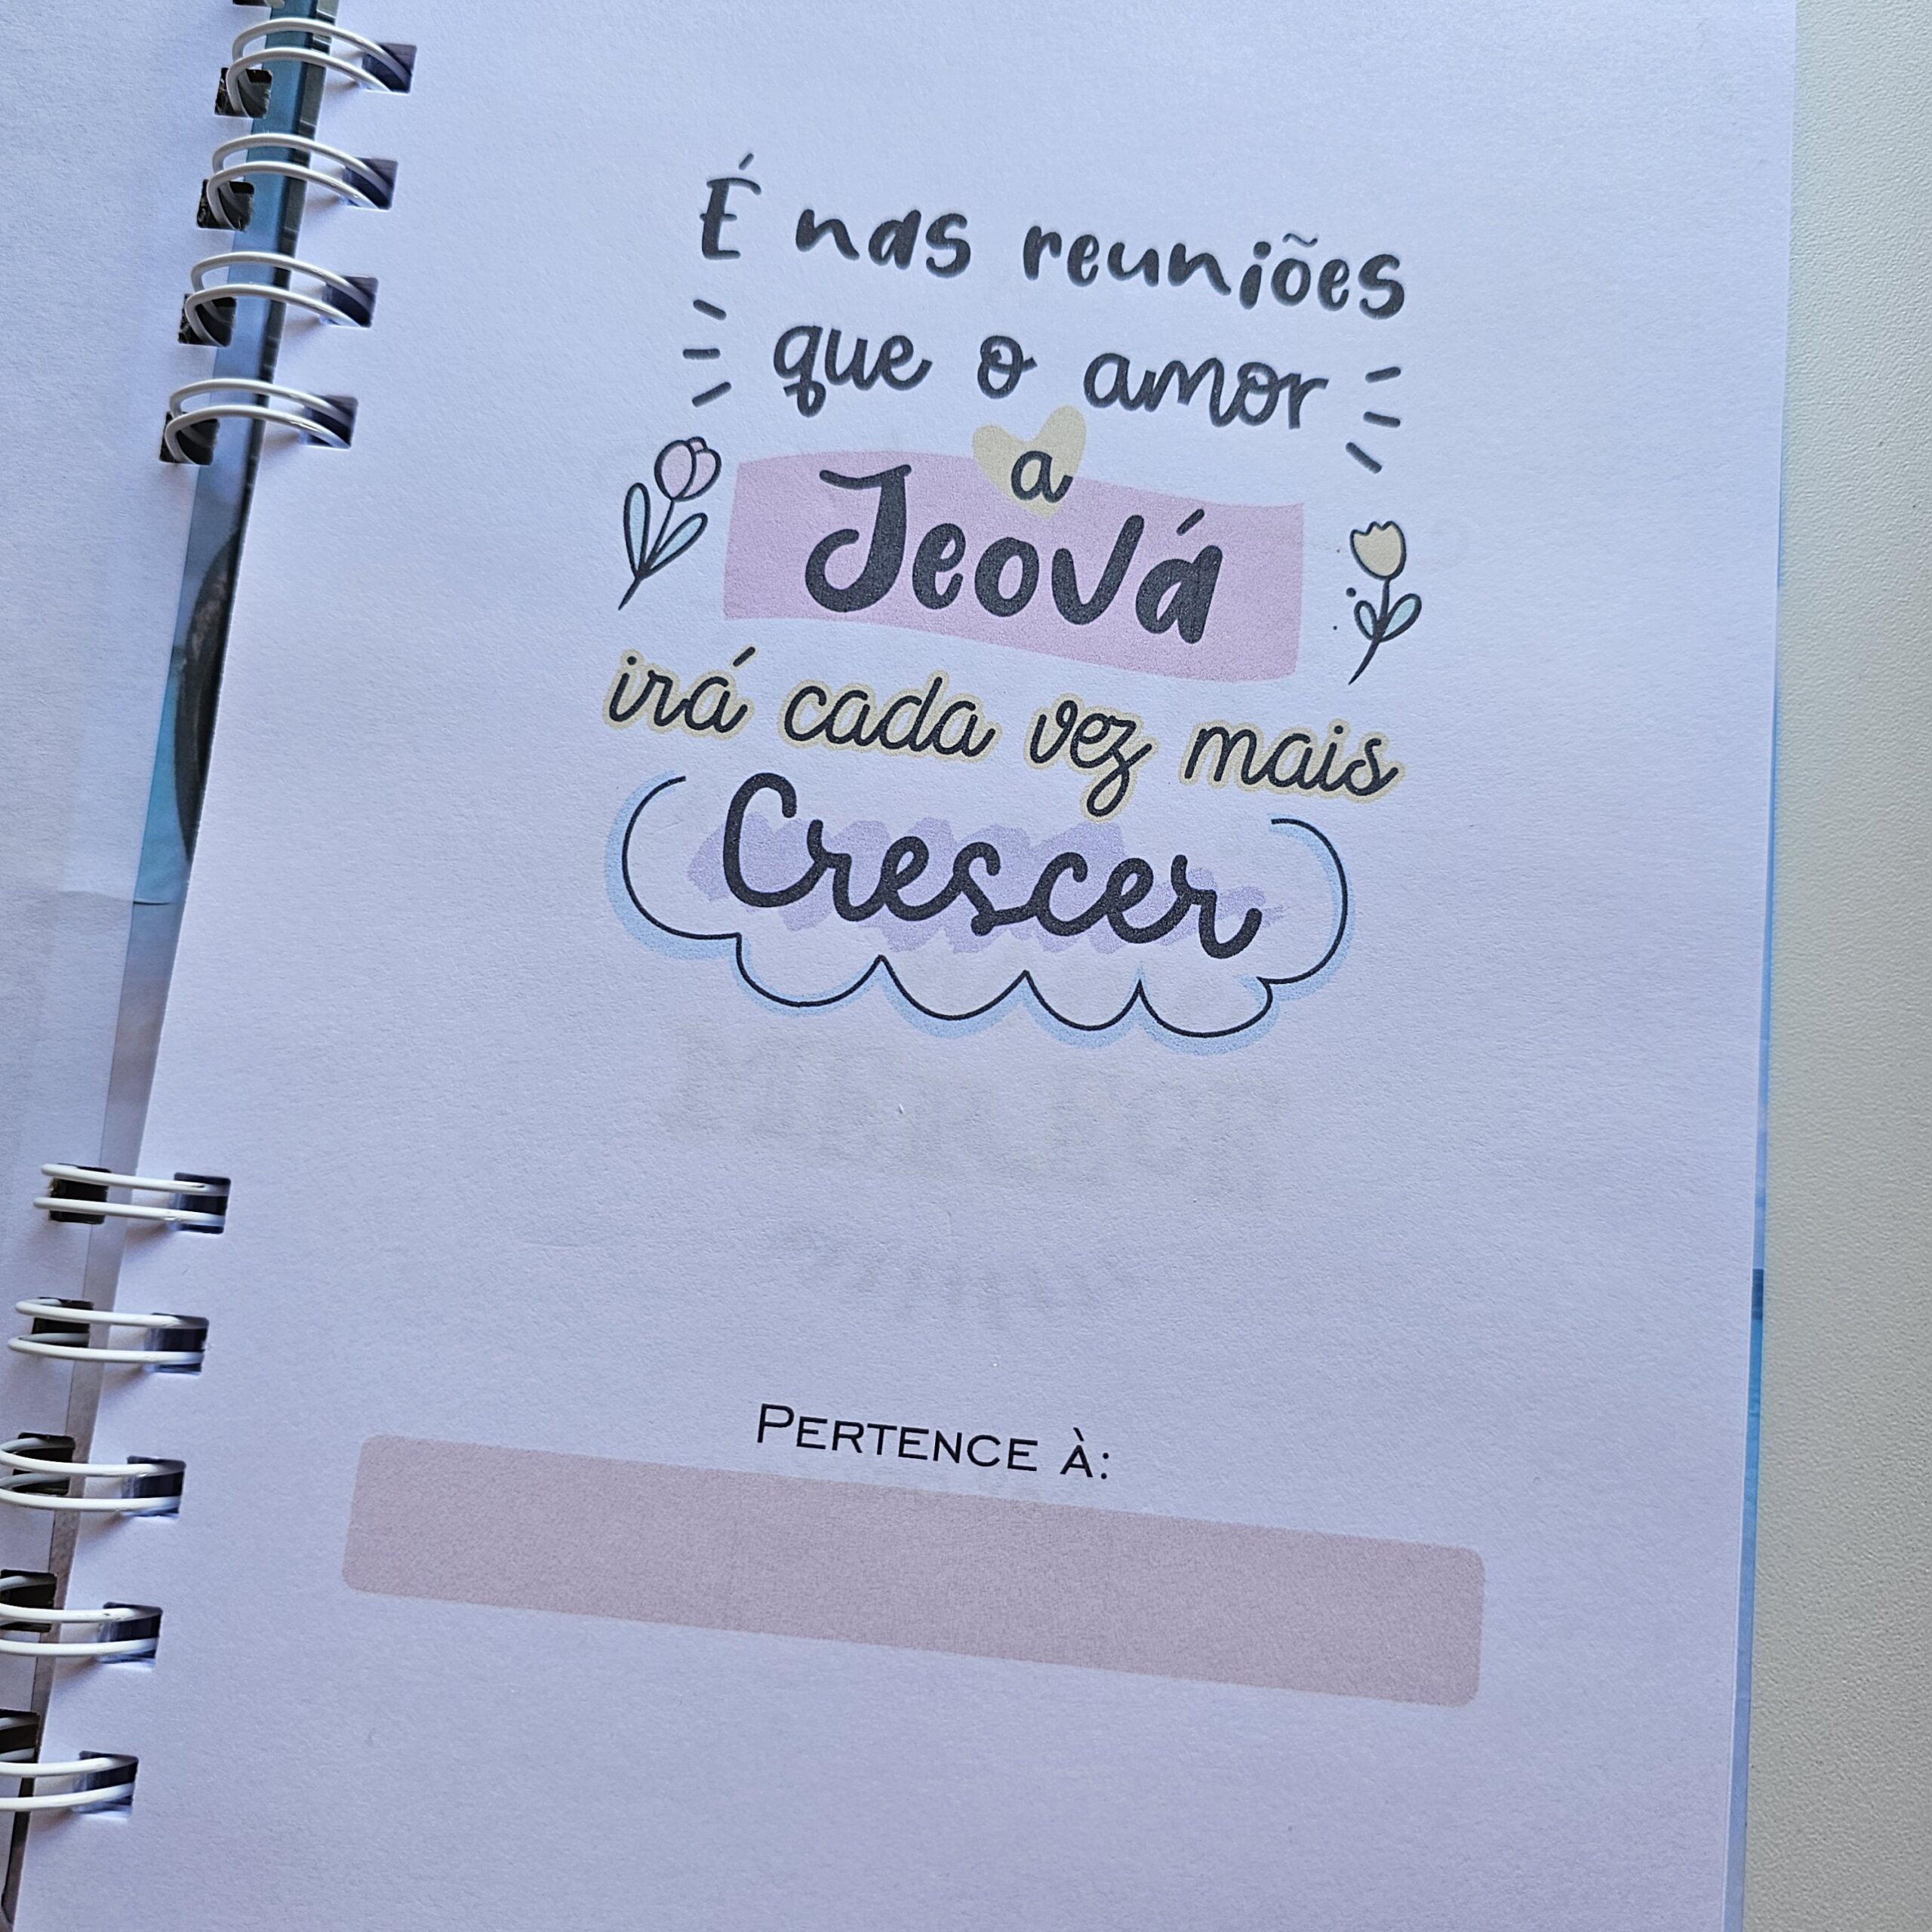 É nas reuniões
que o amor
a
Jeová
irá cada vez mais
Crescer
PERTENCE À: